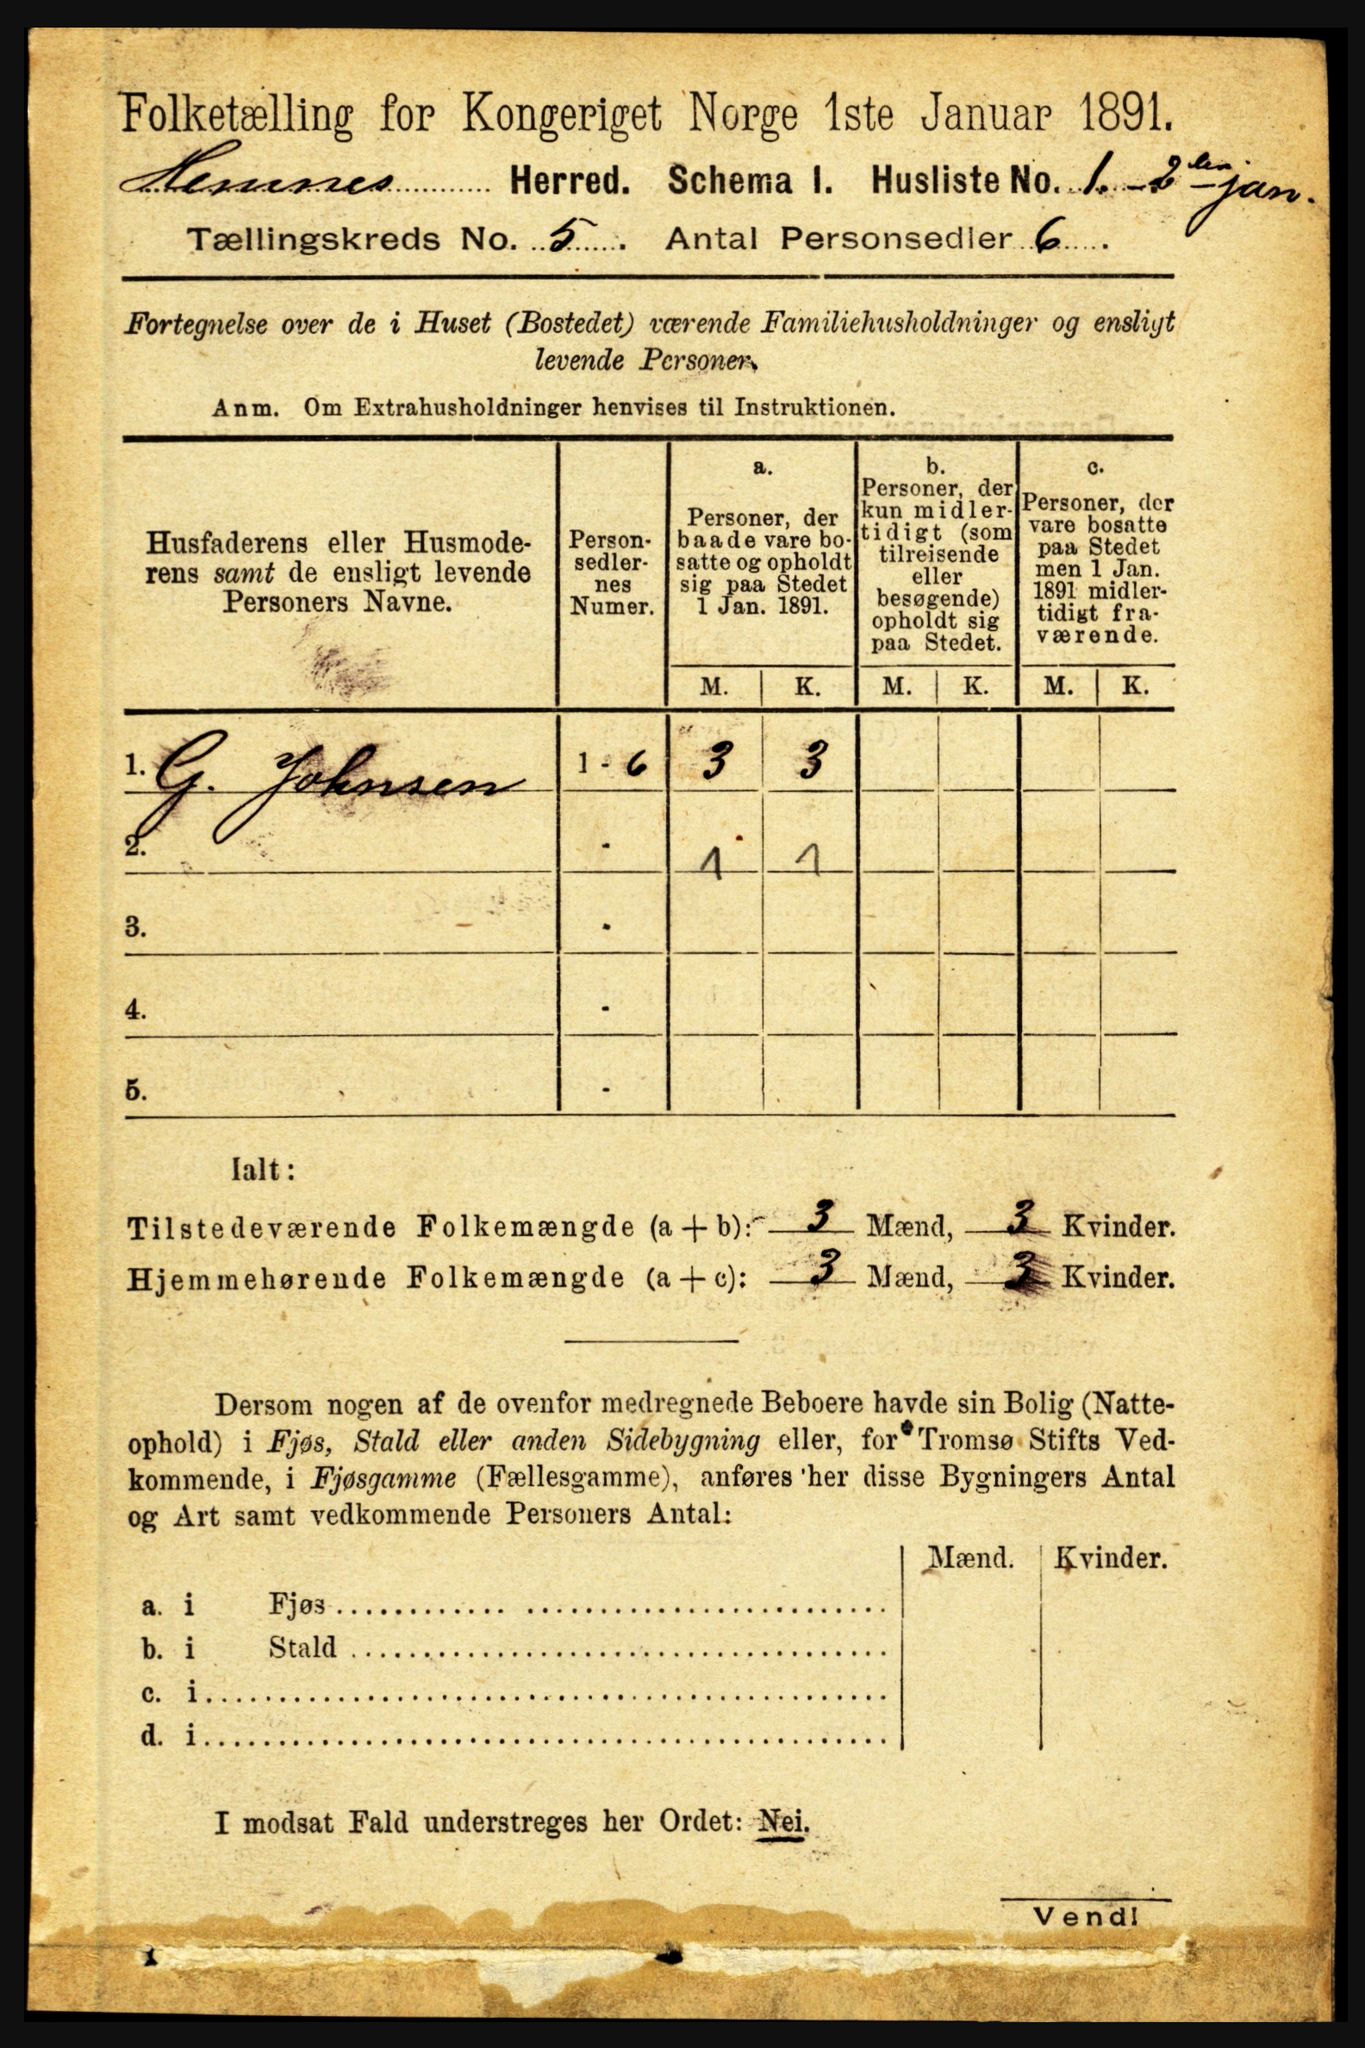 Folketælling for Kongeriget Norge 1ste Januar 1891.
Hemnes Herred. Schema I. Husliste No. 1. - 2den jan.
Tællingskreds No. 5. Antal Personsedler 6.
Fortegnelse over de i Huset (Bostedet) værende Familiehusholdninger og ensligt
levende Personer.
Anm. Om Extrahusholdninger henvises til Instruktionen.
Husfaderens eller Husmode-
rens samt de ensligt levende
Personers Navne.
Person-
sedler-
nes
Numer.
a.
Personer, der
baade vare bo-
satte og opholdt
sig paa Stedet
1 Jan. 1891.
b.
Personer, der
kun midler-
tidigt (som
tilreisende
eller
besøgende)
opholdt sig
paa Stedet.
c.
Personer, der
vare bosatte
paa Stedet
men 1 Jan.
1891 midler-
tidigt fra-
værende.
M. K. M. K. M. K.
1. G. Johnsen 1 - 6 3 3
2. - 1 1
3. -
4. -
5. -
Ialt:
Tilstedeværende Folkemængde (a + b): 3 Mænd, 3 Kvinder.
Hjemmehørende Folkemængde (a + c): 3 Mænd, 3 Kvinder.
Dersom nogen af de ovenfor medregnede Beboere havde sin Bolig (Natte-
ophold) i Fjøs, Stald eller anden Sidebygning eller, for Tromsø Stifts Ved-
kommende, i Fjøsgamme (Fællesgamme), anføres her disse Bygningers Antal
og Art samt vedkommende Personers Antal:
Mænd. Kvinder.
a. i Fjøs
b. i Stald
c. i
d. i
I modsat Fald understreges her Ordet: Nei.
Vend!